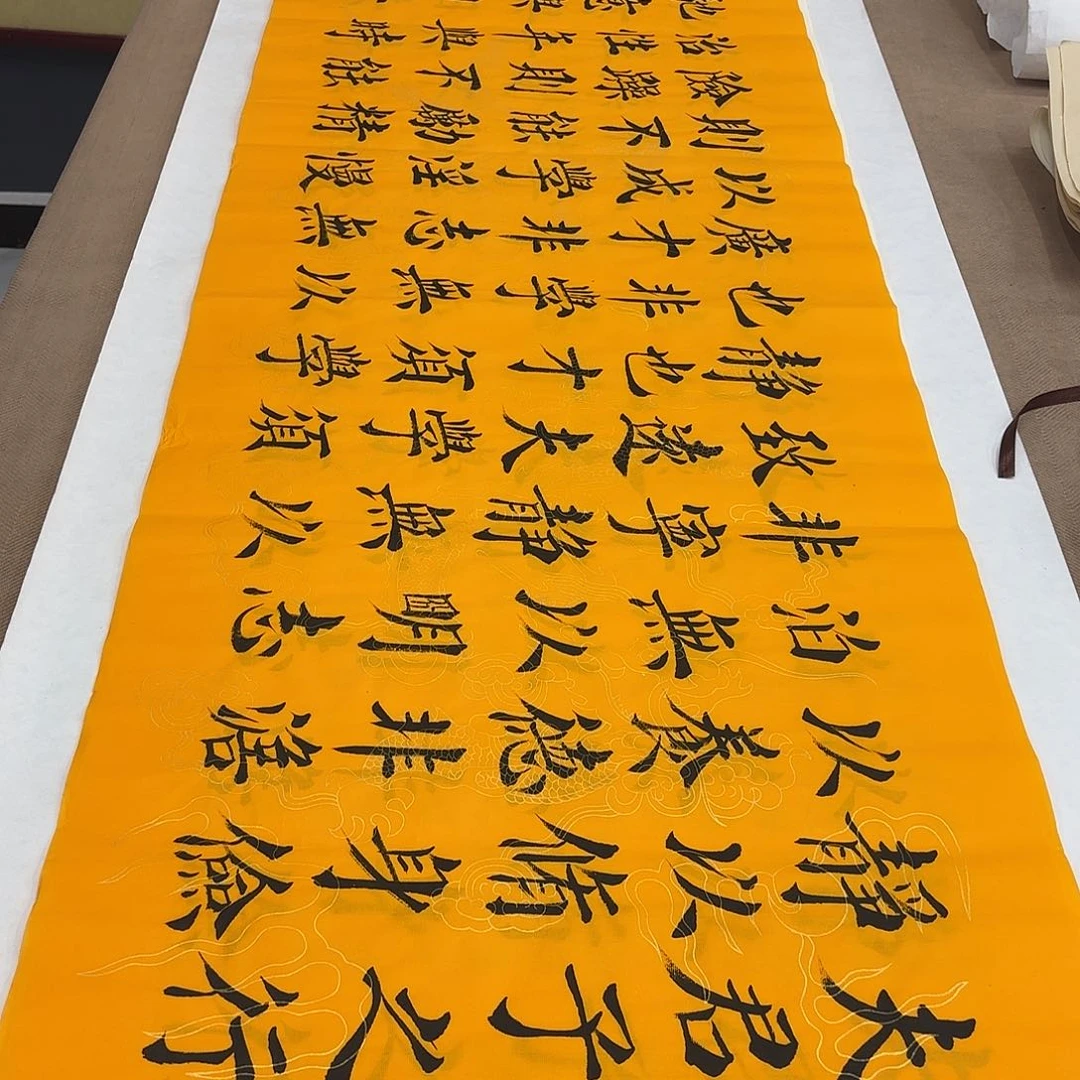 夫君子之行
靜以脩身儉
以養德非澹
泊無以明志
非寧靜無以
致遠夫學須
靜也才須學
也非學無以
廣才非志無
以成學淫慢
則不能勵精
險躁則不能
治性年與時
馳意與